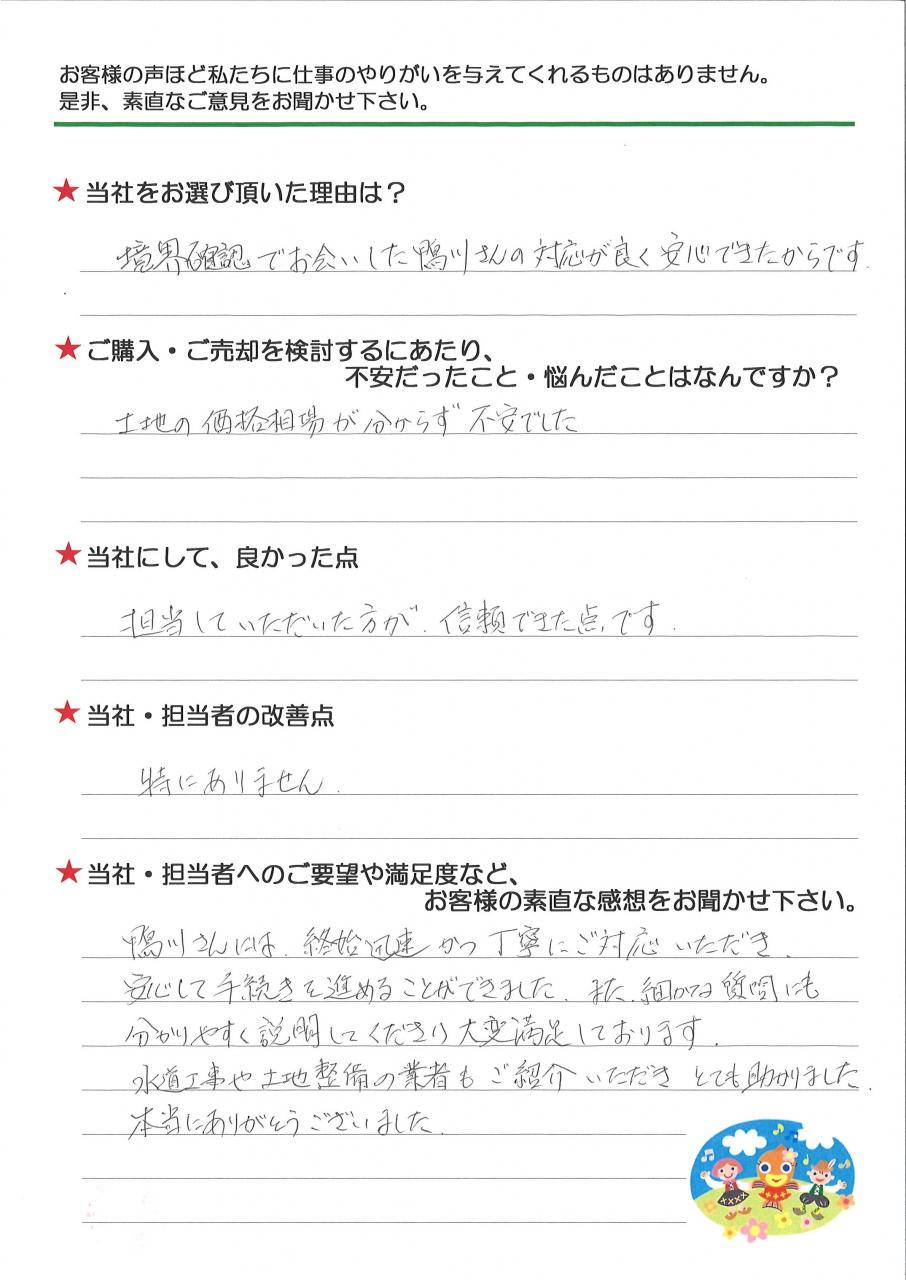 お客様の声ほど私たちに仕事のやりがいを与えてくれるものはありません。
是非、素直なご意見をお聞かせ下さい。
★当社をお選び頂いた理由は？
境界確認でお会いした鴨川さんの対応が良く安心できたからです.
★ご購入・ご売却を検討するにあたり、
不安だったこと・悩んだことはなんですか？
土地の価格相場が分からず不安でした
★当社にして、良かった点
担当していただいた方が、信頼できた点です.
★当社・担当者の改善点
特にありません.
★当社・担当者へのご要望や満足度など、
お客様の素直な感想をお聞かせ下さい。
鴨川さんには、終始迅速かつ丁寧にご対応いただき、
安心して手続きを進めることができました。また、細かな質問にも
分かりやすく説明してくださり大変満足しております.
水道工事や土地整備の業者もご紹介いただきとても助かりました.
本当にありがとうございました.